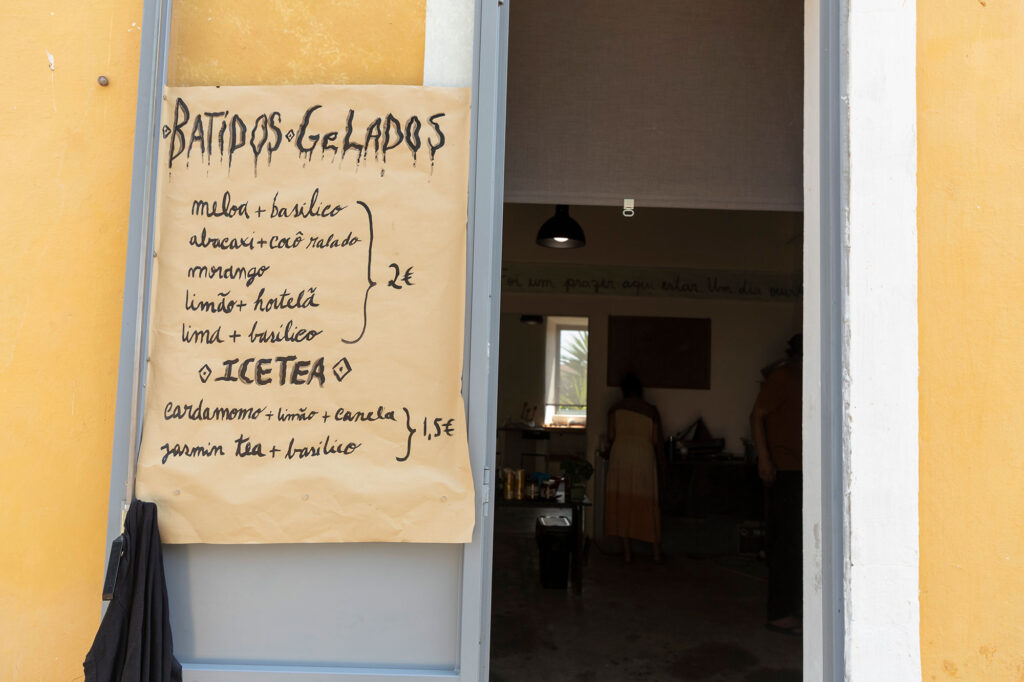 BATIDOS GELADOS
meloa + basilico
abacaxi + cocô ralado
morango
limão + hortelã
lima + basilico
2€
ICETEA
cardamomo + limão + canela
jasmin tea + basilico
1,5€
Foi um prazer aqui estar. Um dia